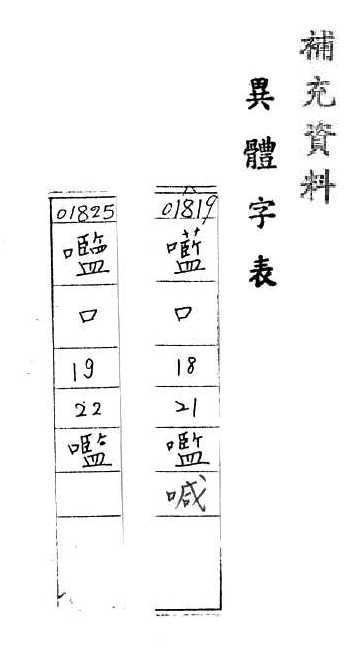 補充資料
異體字表
01819
㘕
口
18
21
嚂
喊
01825
口
19
22
嚂